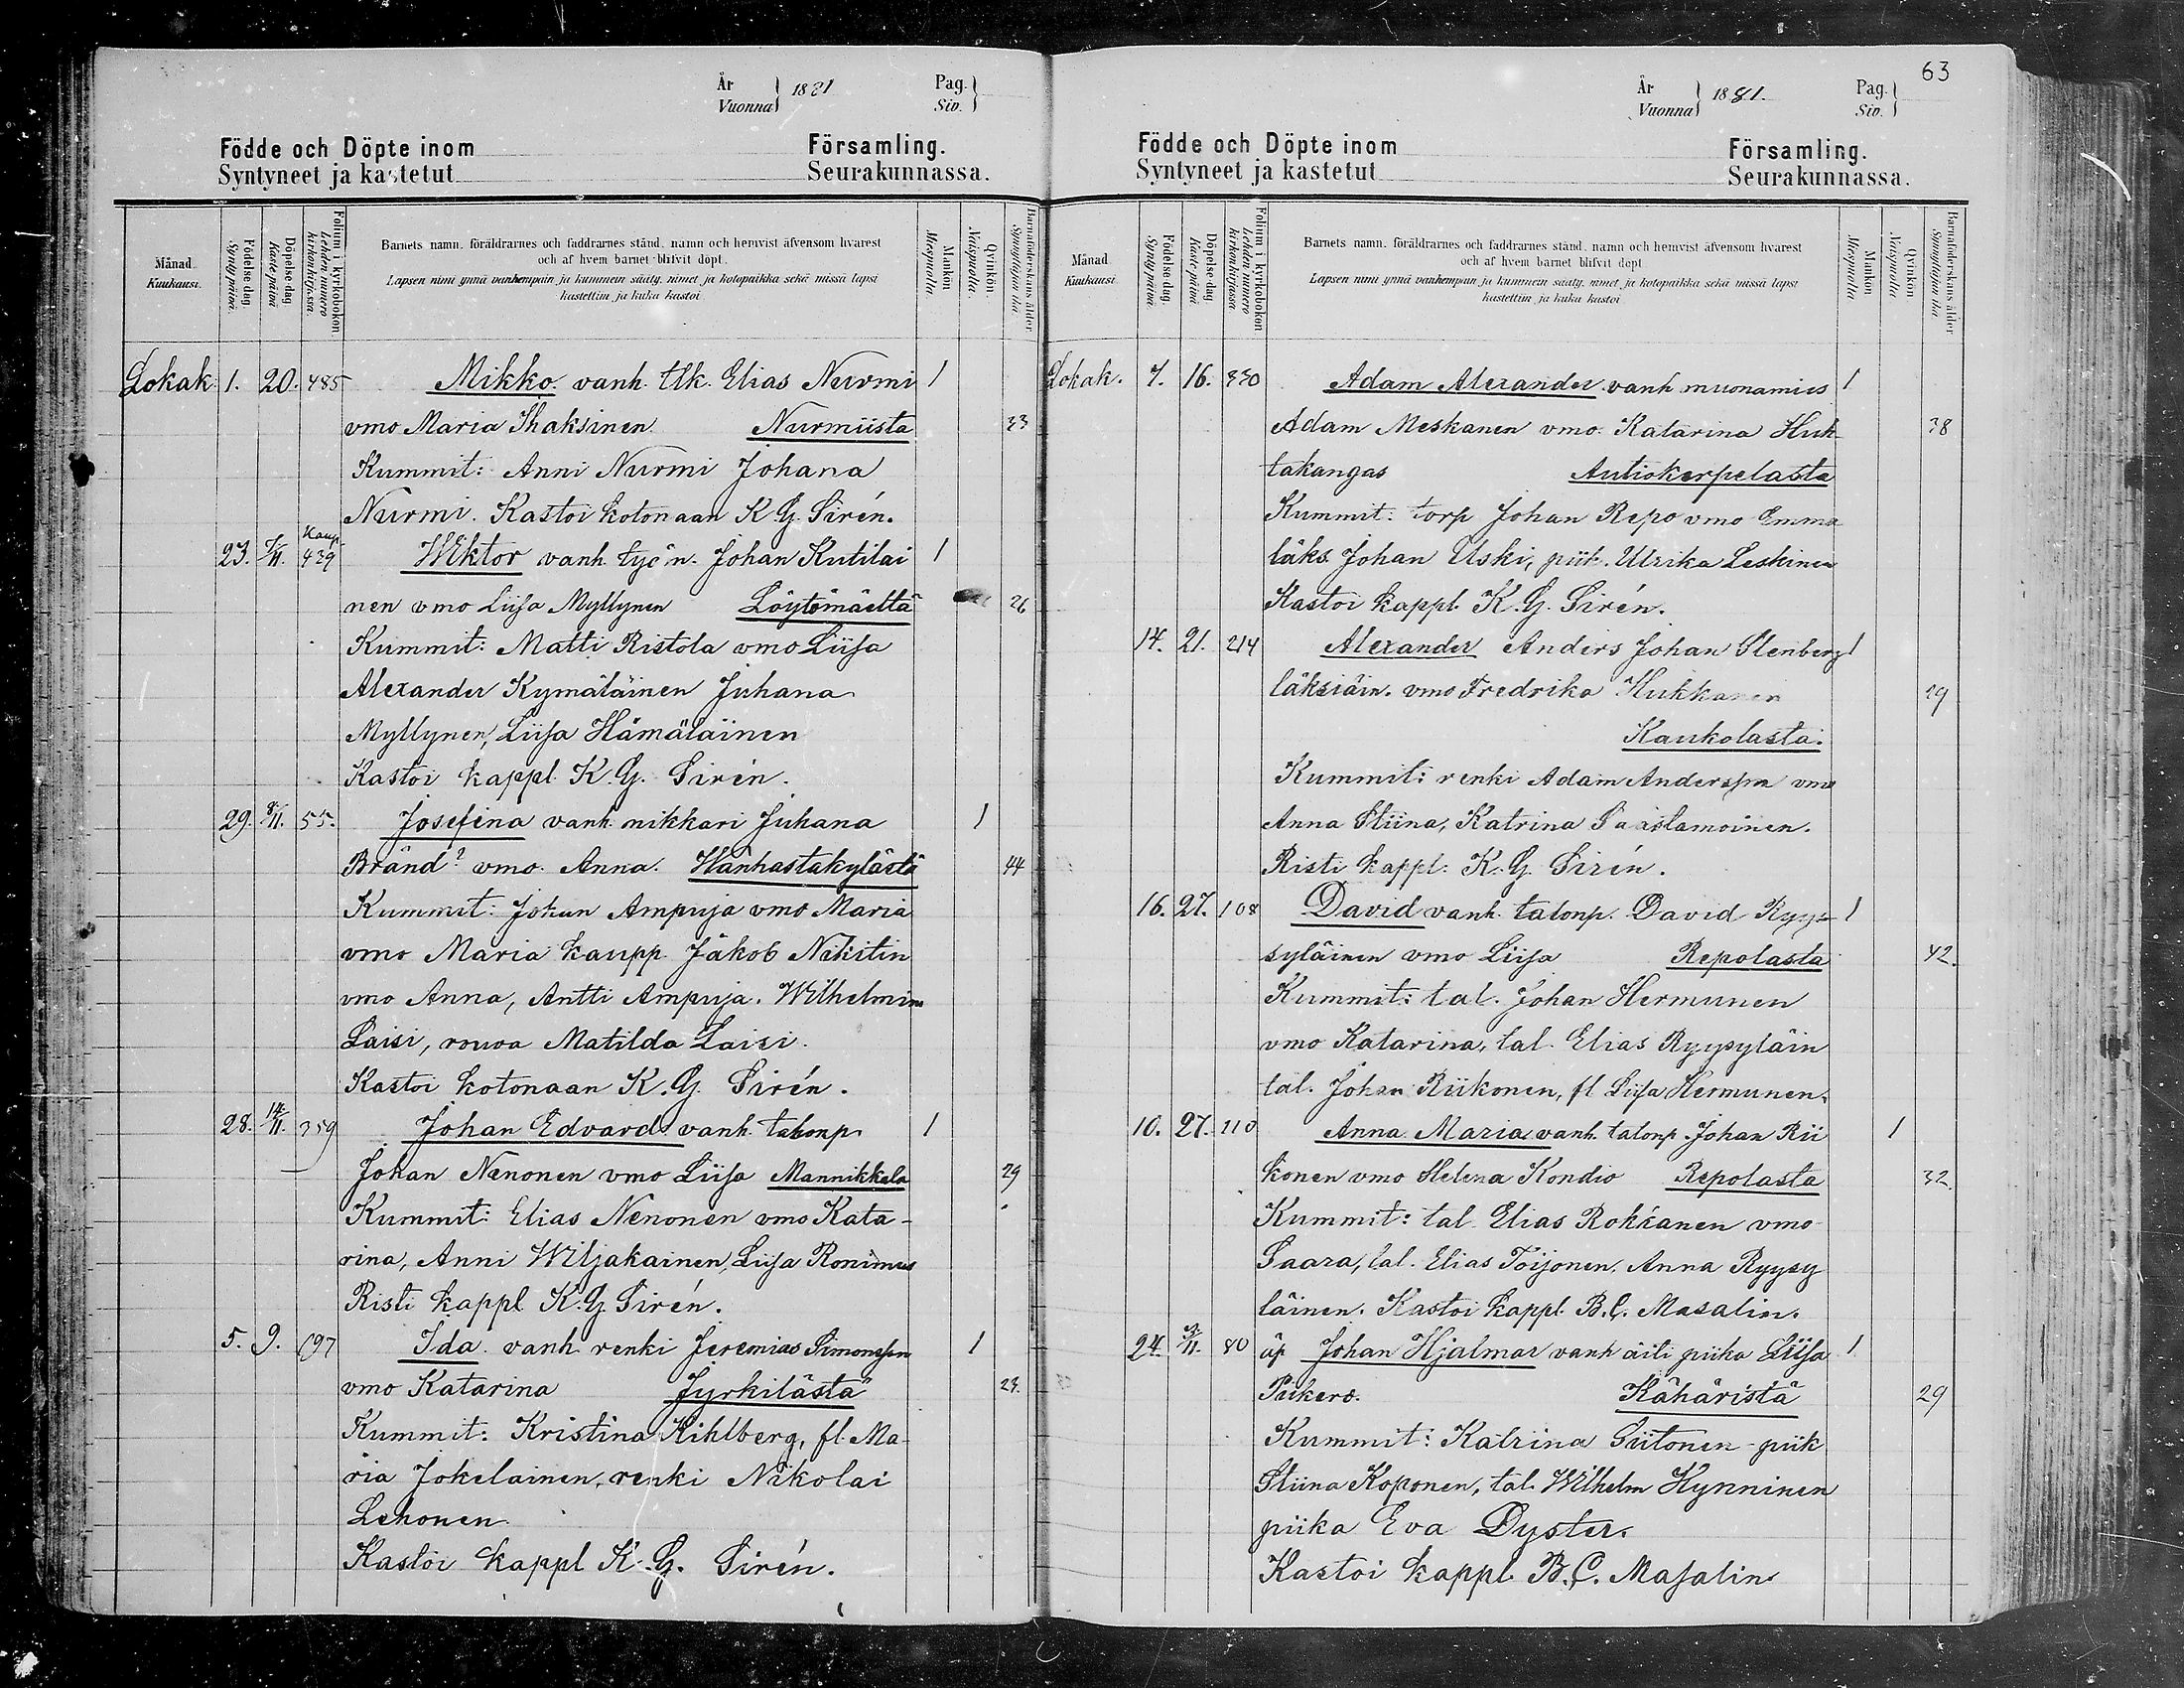 År
Vuonna } 1881
Pag.
Siv. }
Födde och Döpte inom Församling.
Syntyneet ja kastetut Seurakunnassa.
Månad. Kuukausi.
Födelse dag. Synty päivä.
Döpelse dag. Kaste päivä
Folium i kyrkoboken. Lehden numero kirkonkirjassa.
Barnets namn, föräldrarnes och faddrarnes stånd, namn och hemvist äfvensom hvarest
och af hvem barnet blifvit döpt.
Lapsen nimi ynnä vanhempain ja kummein sääty, nimet ja kotopaikka sekä missä lapsi
kastettiin ja kuka kastoi
Mankön Miespuolia.
Qvinkön Naispuolia.
Barnaföderskans ålder Synnyttäjän ikä
Lokak. 1. 20. 485 Mikko vanh. tlk. Elias Nurmi 1
vmo Maria Ihaksinen Nurmiista 33
Kummit: Anni Nurmi Johana
Nurmi. Kastoi kotonaan K G. Sirén.
Kaup.
23. 7/11. 439 Wiktor vanh. työn. Johan Kutilai 1
nen vmo Liisa Myllynen Löytömäeltä 26
Kummit: Matti Ristola vmo Liisa
Alexander Kymäläinen Juhana
Myllynen, Liisa Hämäläinen
Kastoi kappl. K. G. Sirén.
29. 8/11. 55. Josefina vanh. nikkari Juhana 1
Bränd? vmo. Anna. Hänhastakylästä 44
Kummit: Johan Ampuja vmo Maria
vmo Maria kaupp. Jakob Nikitin
vmo Anna, Antti Ampuja. Wilhelmina
Laisi, rouva Matilda Laisi.
Kastoi kotonaan K. G. Sirén.
28. 14/11. 359 Johan Edvard vanh. talonp. 1
Johan Nenonen vmo Liisa Mannikkala 29
Kummit: Elias Nenonen vmo Kata-
rina, Anni Wiljakainen, Liisa Ronimus
Risti kappl K. G. Sirén.
5. 9. 197 Ida vanh. renki Jeremias Simonsson 1
vmo Katarina Jyrkilästä 23.
Kummit: Kristina Kihlberg, fl. Ma
ria Jokelainen, renki Nikolai
Lehonen.
Kastoi kappl K. G. Sirén.
63
År
Vuonna } 1881.
Pag.
Siv. }
Födde och Döpte inom Församling.
Syntyneet ja kastetut Seurakunnassa.
Månad Kuukausi
Födelse dag Synty päivä.
Döpelse dag Kaste päivä
Folium i kyrkoboken Lehden numero kirkonkirjassa
Barnets namn, föräldrarnes och faddrarnes stånd, namn och hemvist äfvensom hvarest
och af hvem barnet blifvit döpt
Lapsen nimi ynnä vanhempain ja kummein sääty, nimet ja kotopaikka sekä missä lapsi
kastettiin ja kuka kastoi
Mankön Miespuolia
Qvinkön Naispuolia
Barnaföderskans ålder Synnyttäjän ikä
Lokak. 7. 16. 330 Adam Alexander vanh muonamies 1
Adam Meskanen vmo. Katarina Huh- 38
takangas Autiokerpelasta
Kummit: torp Johan Repo vmo Emma
läks. Johan Uski, piik. Ulrika Leskinen
Kastoi kappl. K. G. Sirén.
14. 21. 214 Alexander Anders Johan Stenberg 1
läksiäin. vmo Fredrika Hukkanen 29
Kaukolasta.
Kummit: renki Adam Andersson vmo
Anna Stiina, Katrina Saaslamoinen.
Risti kappl. K. G. Sirén.
16. 27. 108 David vanh. talonp. David Ryys- 1
syläinen vmo Liisa Repolasta 42.
Kummit: tal. Johan Hermunen
vmo Katarina, tal. Elias Ryysyläin
tal. Johan Riikonen, fl Liisa Hermunen.
10. 27. 110 Anna Maria vanh. talonp. Johan Rii 1
konen vmo Helena Kondio Repolasta 32.
Kummit: tal. Elias Rokkanen vmo
Saara, tal. Elias Toijonen, Anna Ryysy
läinen. Kastoi kappl. B. C. Masalin.
24. 3/11. 80 äp Johan Hjalmar vanh äiti piika Liisa 1
Pukero. Kähäristä 29
Kummit: Katrina Siitonen piik
Stiina Koponen, tal. Wilhelm Hynninen
piika Eva Dyster.
Kastoi kappl. B. C. Masalin